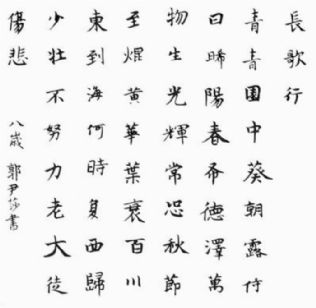 長歌行
青青園中葵朝露待
日晞陽春布德澤萬
物生光輝常恐秋節
至焜黃華葉衰百川
東到海何時复西歸
少壯不努力老大徒
傷悲
八歲 郭尹莎書